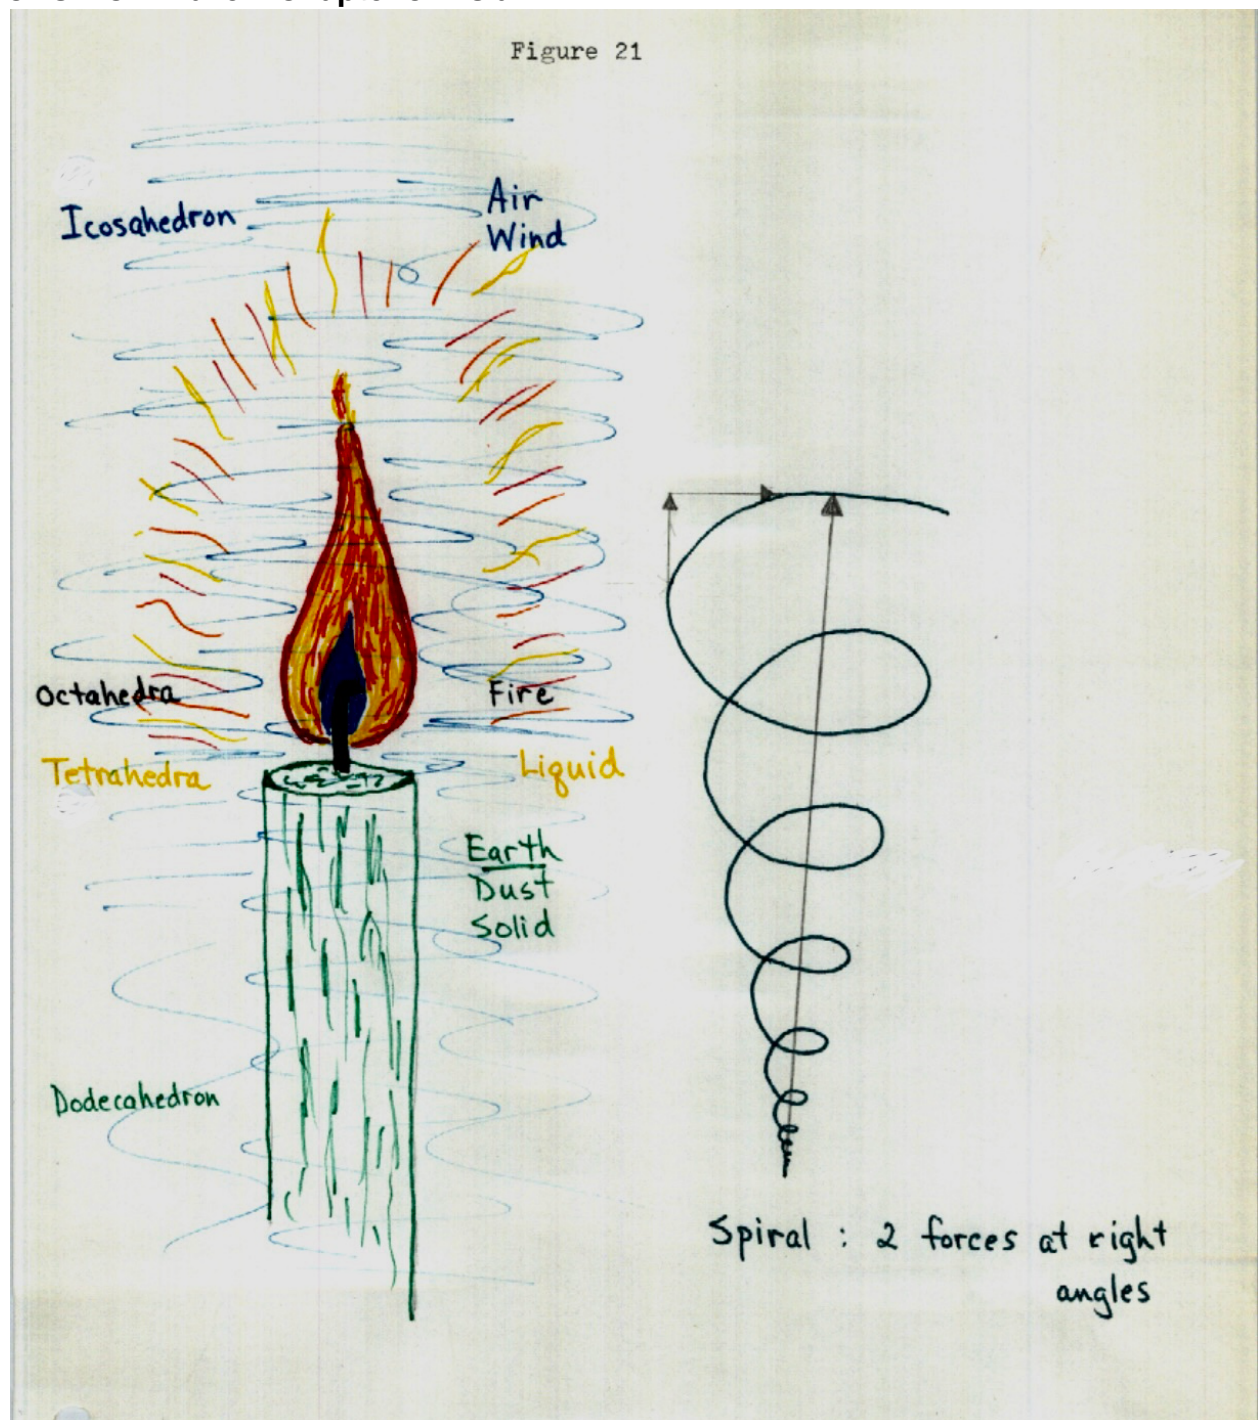 Figure 21
Icosahedron
Air
Wind
Octahedra
Fire
Tetrahedra
Liquid
Earth
Dust
Solid
Dodecahedron
Spiral : 2 forces at right
angles